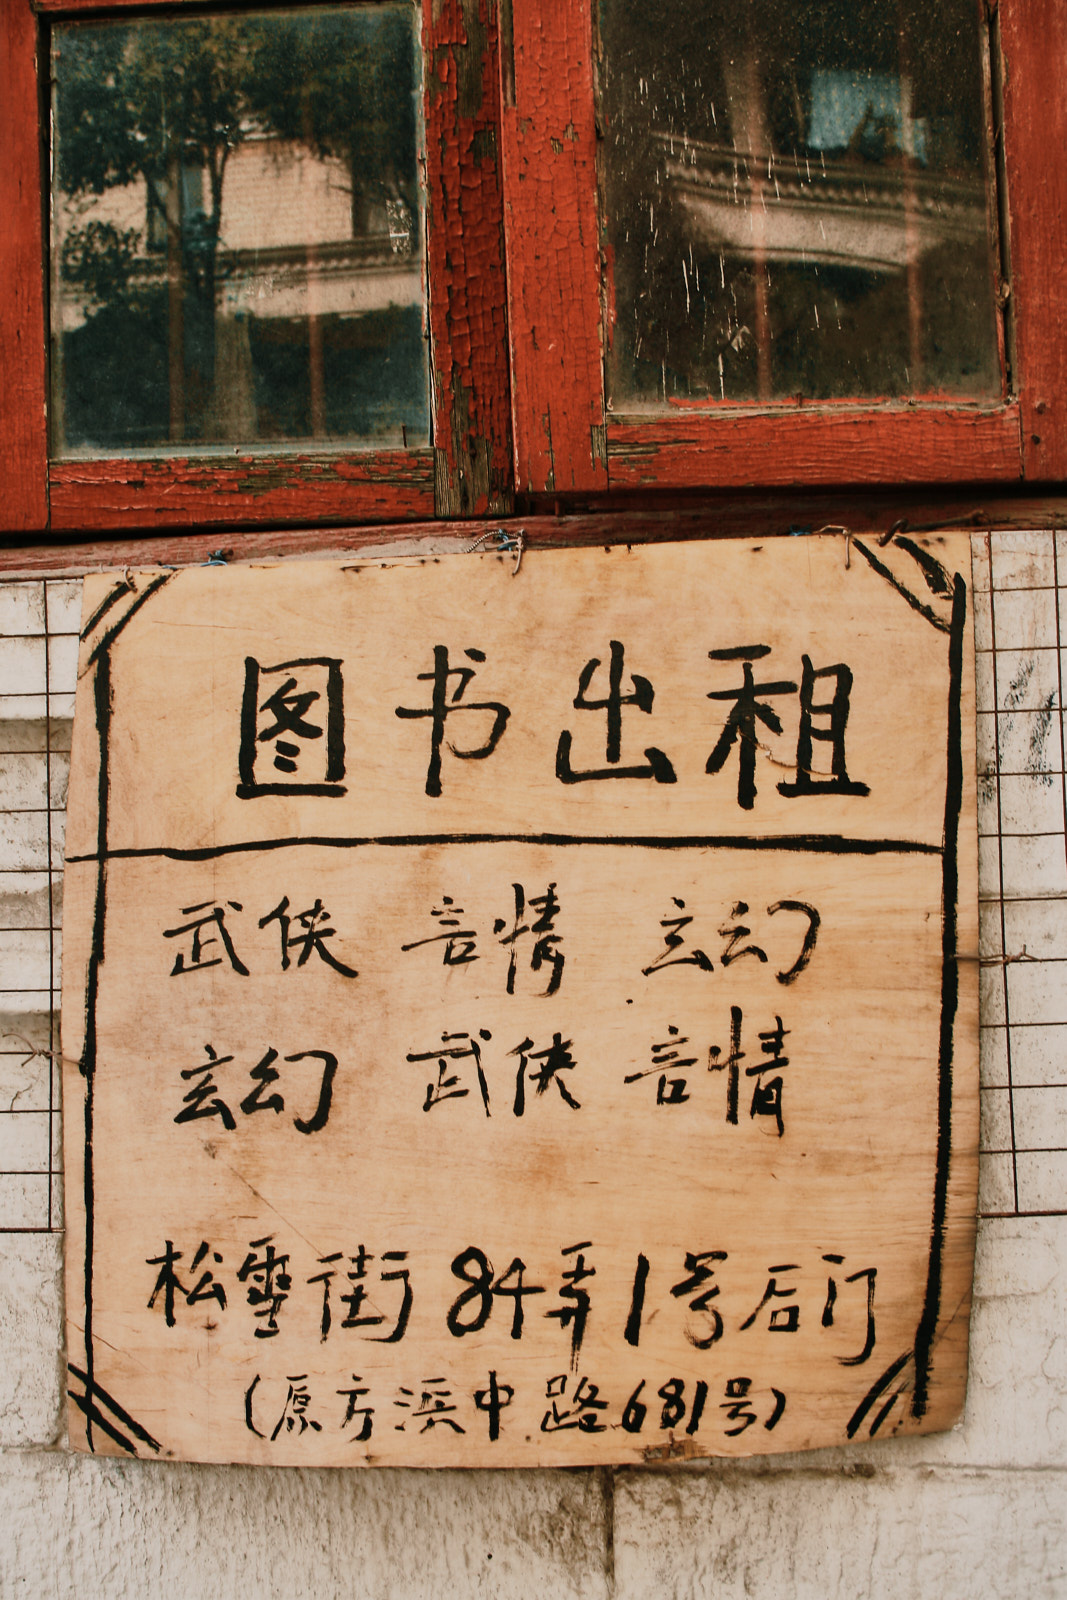 图书出租
武侠 言情 玄幻
玄幻 武侠 言情
松雪街84弄1号后门
(原方浜中路681号)